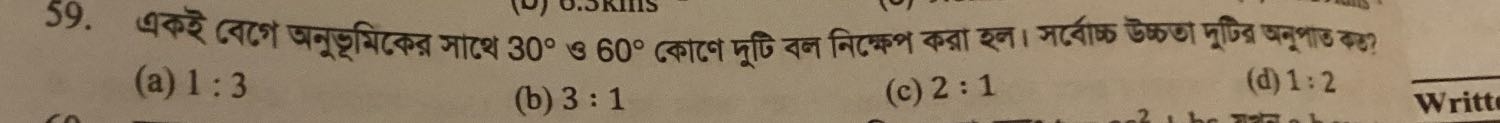 (b) 6.3kms
59. একই বেগে অনুভূমিকের সাথে 30° ও 60° কোণে দুটি বল নিক্ষেপ করা হল। সর্বোচ্চ উচ্চতা দুটির অনুপাত কত?
(a) 1 : 3 (b) 3 : 1 (c) 2 : 1 (d) 1 : 2
Writt